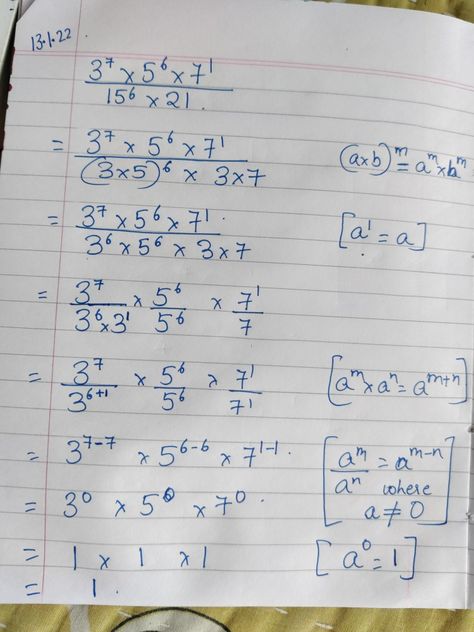 13.1.22
3⁷ × 5⁶ × 7¹
15⁶ × 21.
= 3⁷ × 5⁶ × 7¹
(3×5)⁶ × 3×7
(a×b)ᵐ = aᵐ × bᵐ
= 3⁷ × 5⁶ × 7¹.
3⁶ × 5⁶ × 3 × 7
[a¹ = a]
= 3⁷/3⁶×3¹ × 5⁶/5⁶ × 7¹/7
= 3⁷/3⁶⁺¹ × 5⁶/5⁶ × 7¹/7¹
[aᵐ × aⁿ = aᵐ⁺ⁿ]
= 3⁷⁻⁷ × 5⁶⁻⁶ × 7¹⁻¹.
[aᵐ/aⁿ = aᵐ⁻ⁿ
where
a ≠ 0]
= 3⁰ × 5⁰ × 7⁰.
= 1 × 1 × 1
[a⁰ = 1]
= 1.